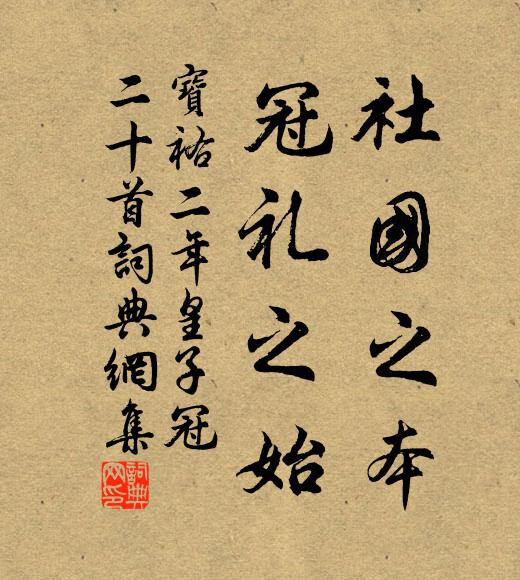 社國之本
冠礼之始
寶祐二年皇子冠
二十首詞典網集
詞典網印